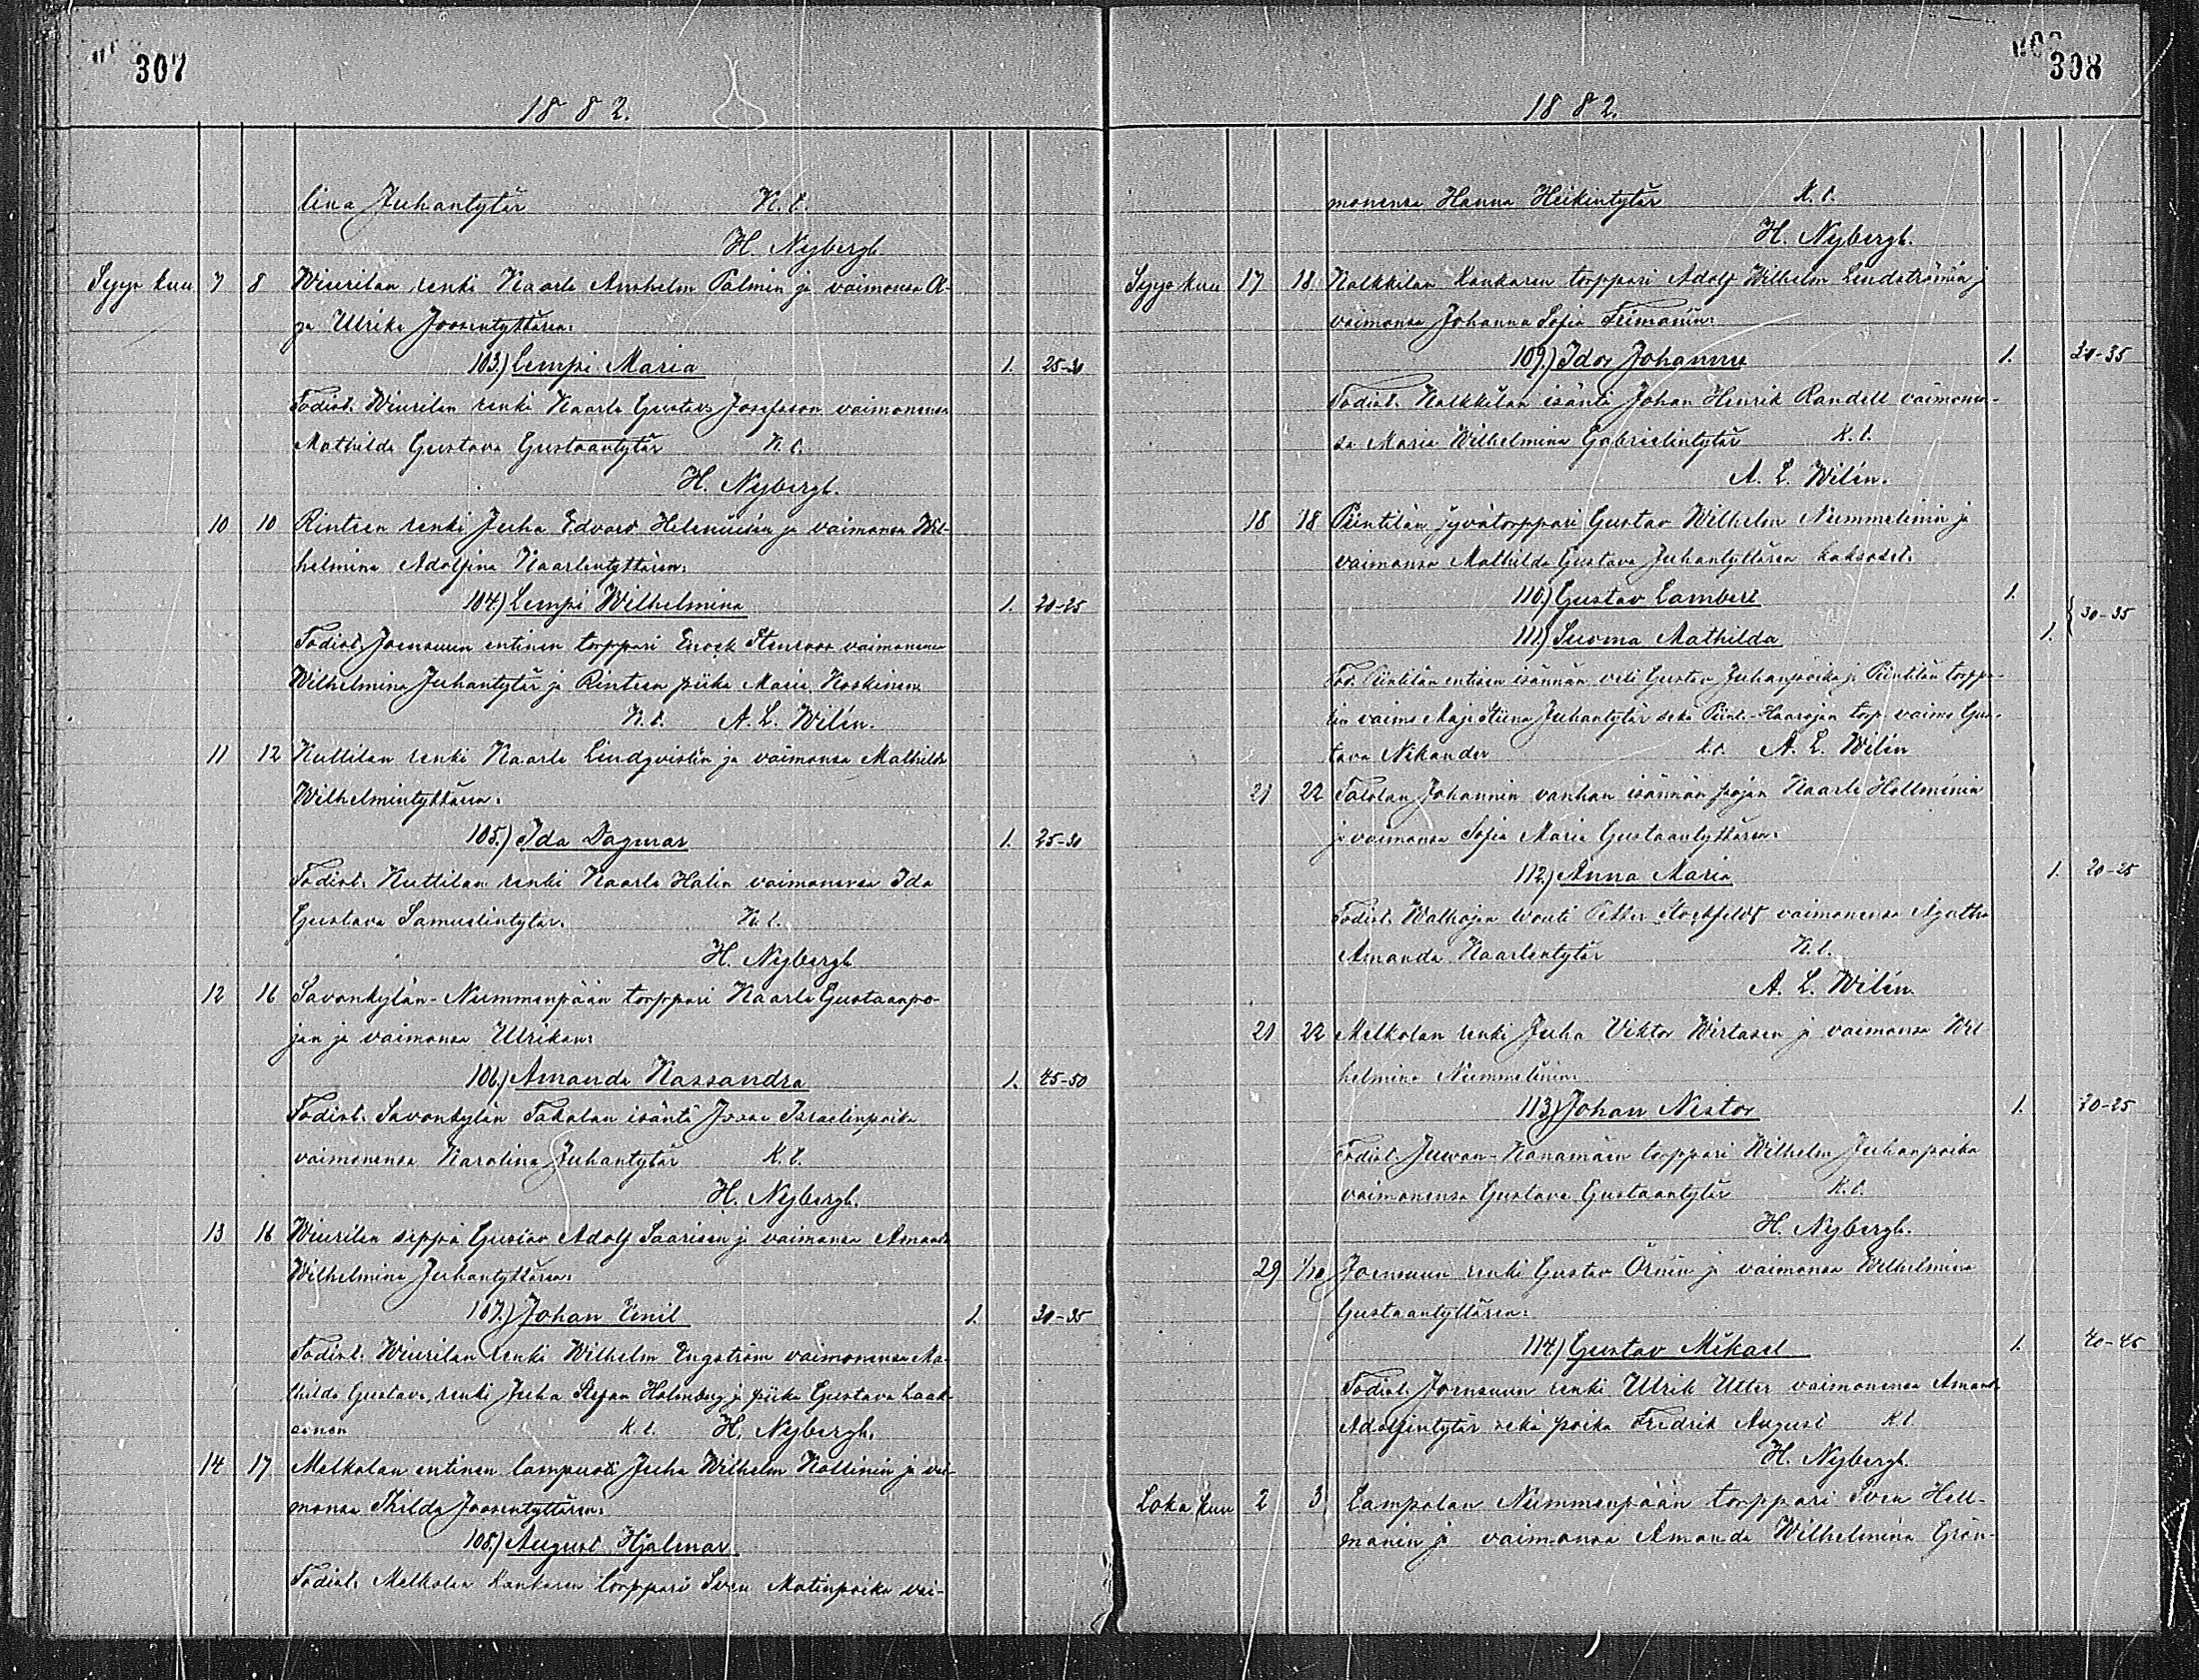 307
1882.
lina Juhantytär K. t.
H. Nybergh.
Syys kuu 7 8 Wiurilan renki Kaarle Anshelm Palmin ja vaimonsa A-
ga Ulrika Joosentyttären:
103.) Lempi Maria 1. 25-30
Todist. Wiurilan renki Kaarle Gustav Josefsson vaimonensa
Mathilda Gustava Gustaantytär K. t.
H. Nybergh.
10 10 Rinteen renki Juha Edvard Heleniusén ja vaimonsa Wil-
helmina Adolfina Kaarlentyttären:
104.) Lempi Wilhelmina 1. 20-25
Todist. Joensuun entinen torppari Enock Stenroos vaimonensa
Wilhelmina Juhantytär ja Rinteen piika Maria Koskinen.
K. t. A. L. Wilén.
11 12 Kuttilan renki Kaarle Lindqvistin ja vaimonsa Mathilda
Wilhelmintyttären:
105.) Ida Dagmar 1. 25-30
Todist. Kuttilan renki Kaarle Halin vaimonensa Ida
Gustava Samuelintytär. K. t.
H. Nybergh
12 16 Savonkylän-Nummenpään torppari Kaarle Gustaanpo-
jan ja vaimonsa Ulrikan:
106.) Amanda Kassandra 1. 45-50
Todist. Savonkylän Takalan isäntä Josse Israelinpoika
vaimonensa Karolina Juhantytär K. t.
H. Nybergh.
13 16 Wiurilan seppä Gustav Adolf Saarisen ja vaimonsa Amanda
Wilhelmina Juhantyttären:
107.) Johan Emil 1. 30-35
Todist. Wiurilan renki Wilhelm Engström vaimonensa Ma-
thilda Gustava, renki Juha Stefan Holmberg ja piika Gustava Laak-
sonen K. t. H. Nybergh.
14 17 Melkolan entinen lampuoti Juha Wilhelm Kollinin ja vai-
monsa Thilda Joosentyttären:
108.) August Hjalmar
Todist. Melkolan Kankaren torppari Sven Matinpoika vai-
308
1882.
monensa Hanna Heikintytär K. t.
H. Nybergh.
Syys kuu 17 18 Kalkkilan Kankaren torppari Adolf Wilhelm Lindströmin ja
vaimonsa Johanna Sofia Friimanin:
109.) Idor Johannes 1. 30-35
Todist. Kalkkilan isäntä Johan Henrik Randell vaimonen-
sa Maria Wilhelmina Gabrielintytär K. t.
A. L. Wilén.
18 18 Piintilän jyvätorppari Gustav Wilhelm Nummelinin ja
vaimonsa Mathilda Gustava Juhantyttären kaksoset:
110.) Gustav Lambert 1.
30-35
111.) Suoma Mathilda 1.
Tod. Piintilän entisen isännän veli Gustav Juhanpoika ja Piintilän torppa-
rin vaimo Maja Stiina Juhantytär sekä Piint.-Haarojan torp. vaimo Gus-
tava Nikander k. t. A. L. Wilén
21 22 Talolan Johannin vanhan isännän pojan Kaarle Hollménin
ja vaimonsa Sofia Maria Gustaantyttären:
112.) Anna Maria 1. 20-25
Todist. Walkojan vouti Petter Stockfelt vaimonensa Agatha
Amanda Kaarlentytär K. t.
A. L. Wilén.
21 22 Melkolan renki Juha Viktor Wirtasen ja vaimonsa Wil
helmina Nummelinin:
113.) Johan Nestor 1. 20-25
Todist. Juwan-Kanamäen torppari Wilhelm Juhanpoika
vaimonensa Gustava Gustaantytär K. t.
H. Nybergh.
29 1/10 Joensuun renki Gustav Örnin ja vaimonsa Wilhelmina
Gustaantyttären:
114.) Gustav Mikael 1. 40-45
Todist. Joensuun renki Ulrik Utter vaimonensa Amanda
Adolfintytär sekä poika Fredrik August K. t.
H. Nybergh.
Loka kuu 2 3 Lampolan Nummenpään torppari Sven Hell-
manin ja vaimonsa Amanda Wilhelmina Grön-